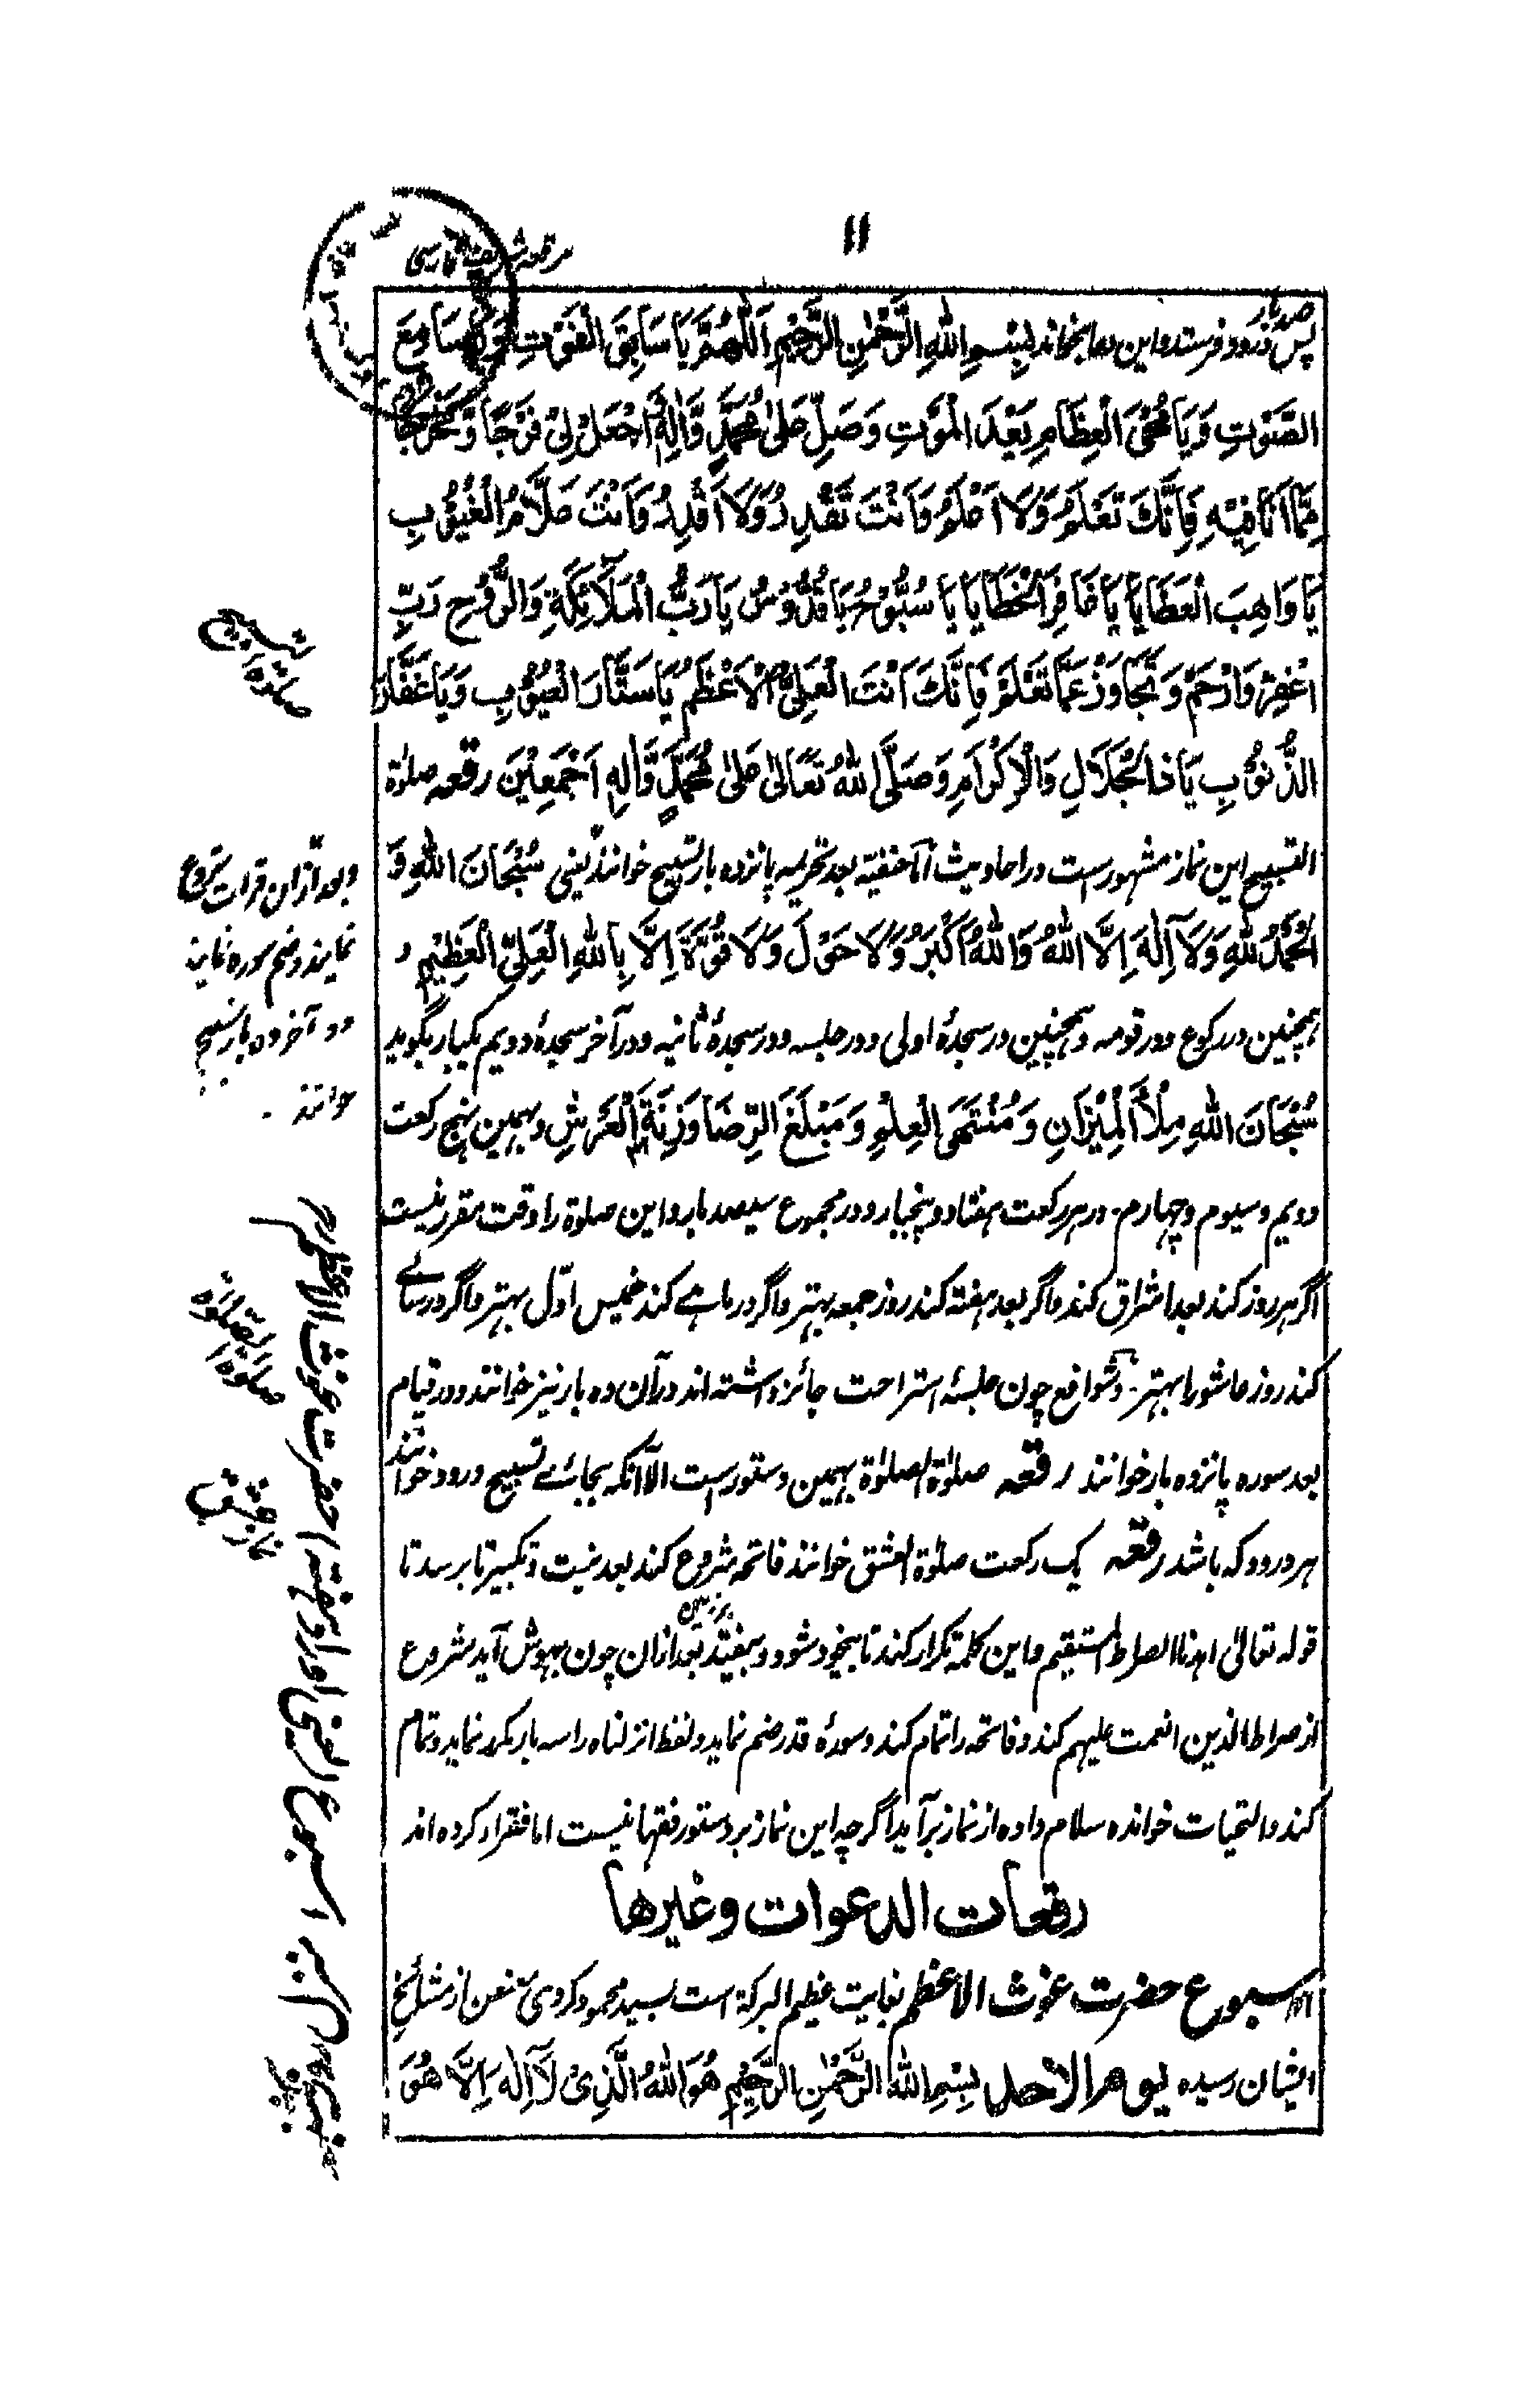 ۱۱
مرقعہ شریف فارسی
صدبار
پس درود فرستد و این دعا بخواند بِسْمِ اللهِ الرَّحْمٰنِ الرَّحِیْمِ اَللّٰهُمَّ یَا سَابِقَ الْفَوْتِ وَیَا سَامِعَ
الصَّوْتِ وَیَا مُحْیَ الْعِظَامِ بَعْدَ الْمَوْتِ وَصَلِّ عَلیٰ مُحَمَّدٍ وَّاٰلِهٖ اجْعَلْ لِیْ فَرَجًا وَّ مَخْرَجًا
مِمَّا اَنَا فِیْهِ فَاِنَّكَ تَعْلَمُ وَلَا اَعْلَمُ وَاَنْتَ تَقْدِرُ وَلَا اَقْدِرُ وَاَنْتَ عَلَّامُ الْغُیُوْبِ
یَا وَاهِبَ الْعَطَایَا یَا غَافِرَ الْخَطَایَا یَا سُبُّوْحُ یَا قُدُّوْسُ یَا رَبُّ الْمَلَآئِكَةِ وَالرُّوْحِ رَبِّ
اغْفِرْ وَارْحَمْ وَتَجَاوَزْ عَمَّا تَعْلَمُ فَاِنَّكَ اَنْتَ الْعَلِیُّ الْاَعْظَمُ یَا سَتَّارَ الْعُیُوْبِ وَیَا غَفَّارَ
الذُّنُوْبِ یَا ذَا الْجَلَالِ وَالْاِكْرَامِ وَصَلَّی اللهُ تَعَالیٰ عَلیٰ مُحَمَّدٍ وَّاٰلِهٖ اَجْمَعِیْنَ رقعہ صلوٰۃ
التسبیح این نماز مشہور است در احادیث اما حنفیہ بعد تحریمہ پانزدہ بار تسبیح خوانند یعنی سُبْحَانَ اللهِ وَ
الْحَمْدُ لِلّٰهِ وَلَآ اِلٰهَ اِلَّا اللهُ وَاللهُ اَكْبَرُ وَلَا حَوْلَ وَلَا قُوَّةَ اِلَّا بِاللهِ الْعَلِیِّ الْعَظِیْمِ و
ہمچنین در رکوع و در قومہ و ہمچنین در سجدۂ اولی و در جلسہ و در سجدۂ ثانیہ و در آخر سجدۂ دویم یکبار بگوید
سُبْحَانَ اللهِ مِلْأَ الْمِیْزَانِ وَمُنْتَهَی الْعِلْمِ وَمَبْلَغَ الرِّضَا وَزِنَةَ الْعَرْشِ و بہمین نہج رکعت
دویم و سیوم و چہارم در ہر رکعت ہفتاد و پنجبار و در مجموع سیصد بار و این صلوۃ را وقت مقرر نیست
اگر ہر روز کند بعد اشراق کند و اگر بعد ہفتہ کند روز جمعہ بہتر و اگر در ماہے کند خمیس اوّل بہتر و اگر در سالے
کند روز عاشورا بہتر و شوافع چون جلسۂ استراحت جائز داشتہ اند در آن دہ بار نیز خوانند و در قیام
بعد سورہ پانزدہ بار خوانند رقعہ صلوٰۃ الصلوٰۃ بہمین دستور است الّا آنکہ بجائے تسبیح درود خوانند
ہر درود کہ باشد رقعہ یک رکعت صلوٰۃ العشق خوانند فاتحہ شروع کند بعد نیت و تکبیر تا برسد تا
قولہ تعالیٰ اہدنا الصراط المستقیم و این کلمہ تکرار کند تا بیخود شود و بیفتد بر زمین بعد ازان چون بہوش آید شروع
از صراط الذین انعمت علیہم کند و فاتحہ را تمام کند و سورۂ قدر ضم نماید و لفظ انزلناہ را سہ بار مکرر نماید و تمام
کند و التحیات خواندہ سلام دادہ از نماز برآید اگرچہ این نماز بر دستور فقہا نیست اما فقرا کردہ اند
رقعات الدعوات وغیرها
اسبوع حضرت غوث الاعظم بغایت عظیم البرکۃ است بسید محمود کردی معنعن از مشائخ
ایشان رسیدہ یوم الاحد بِسْمِ اللهِ الرَّحْمٰنِ الرَّحِیْمِ هُوَ اللهُ الَّذِیْ لَآ اِلٰهَ اِلَّا هُوَ
صلوۃ
التسبیح
و بعد ازان قرات شروع
نمایند و ضم سورہ نمایند
و در آخر دہ بار تسبیح
خوانند
صلوۃ الصلوۃ
نماز عشق